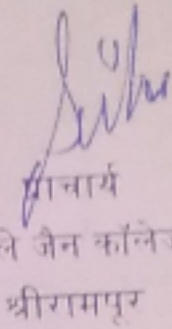 प्राचार्य
ले जैन कॉलेज
श्रीरामपूर